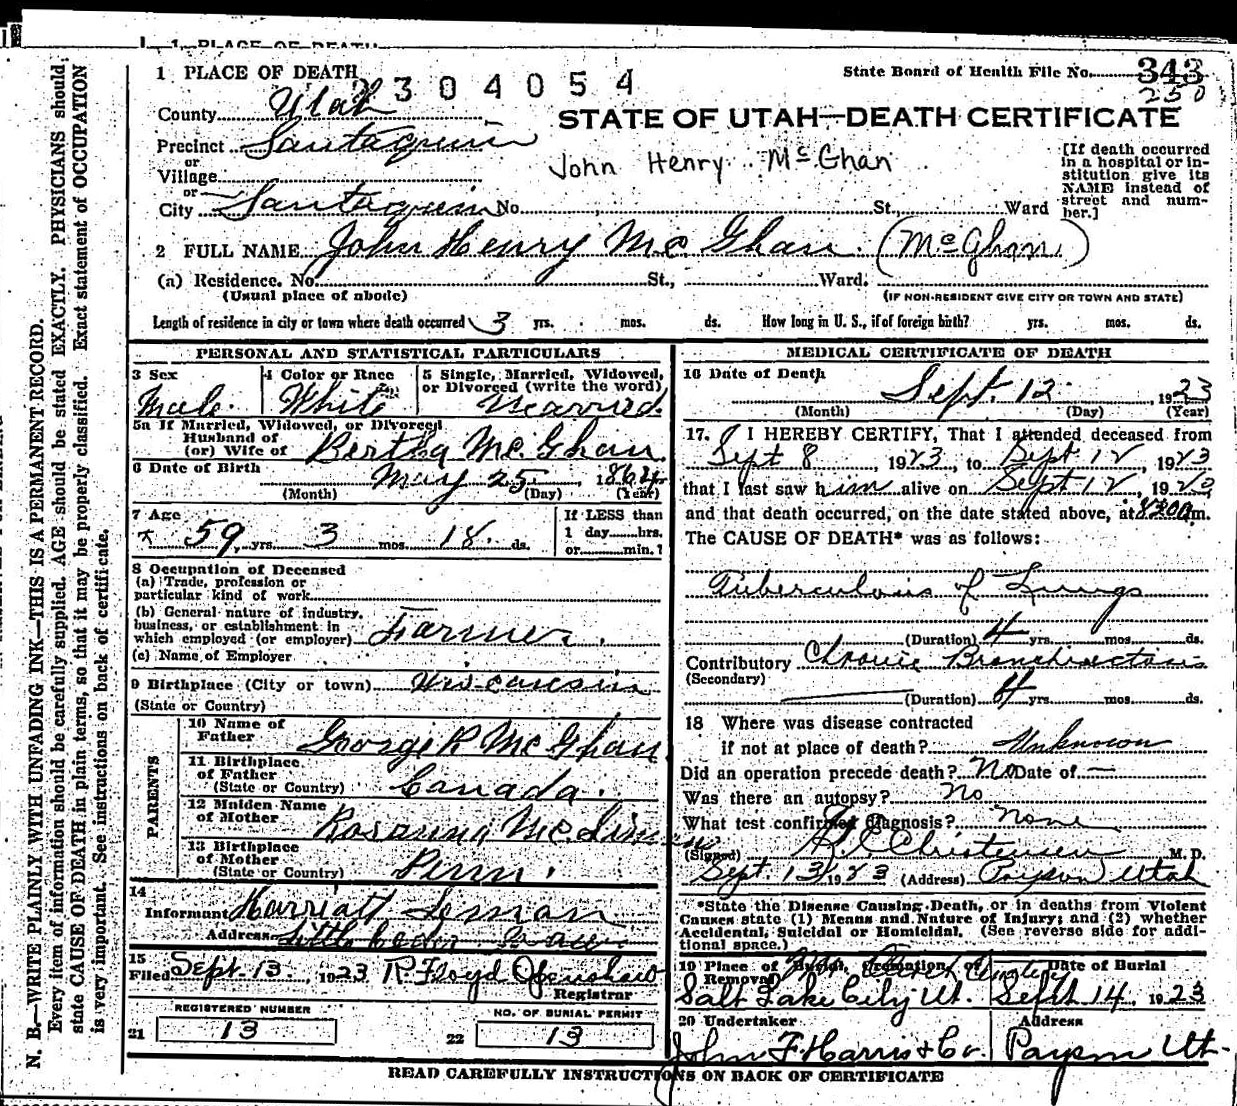 1 PLACE OF DEATH
2304054
State Board of Health File No. 343
250
County Utah
STATE OF UTAH—DEATH CERTIFICATE
Precinct Santaquin
John Henry McGhan
or
Village
or
City Santaquin No. St., Ward
[If death occurred
in a hospital or in-
stitution give its
NAME instead of
street and num-
ber.]
2 FULL NAME John Henry Mc Ghan (McGhan)
(a) Residence. No. St., Ward.
(Usual place of abode)
(IF NON-RESIDENT GIVE CITY OR TOWN AND STATE)
Length of residence in city or town where death occurred 3 yrs. mos. ds. How long in U. S., if of foreign birth? yrs. mos. ds.
PERSONAL AND STATISTICAL PARTICULARS
3 Sex
Male.
4 Color or Race
White
5 Single, Married, Widowed,
or Divorced (write the word)
Married.
5a If Married, Widowed, or Divorced
Husband of
(or) Wife of Bertha Mc Ghan
6 Date of Birth
May 25, 1864
(Month) (Day) (Year)
7 Age
59 yrs. 3 mos. 18 ds.
If LESS than
1 day hrs.
or min.?
8 Occupation of Deceased
(a) Trade, profession or
particular kind of work
(b) General nature of industry,
business, or establishment in
which employed (or employer) Farmer.
(c) Name of Employer
9 Birthplace (City or town) Wisconsin
(State or Country)
PARENTS
10 Name of
Father George R Mc Ghan
11 Birthplace
of Father
(State or Country) Canada.
12 Maiden Name
of Mother Rosanna Mc
13 Birthplace
of Mother
(State or Country) Penn.
14
Informant Harriatt Leman
Address Little
15
Filed Sept. 13. 1923 R. Floyd Openshaw
Registrar
REGISTERED NUMBER
21 13
NO. OF BURIAL PERMIT
22 13
MEDICAL CERTIFICATE OF DEATH
16 Date of Death
Sept. 12, 1923
(Month) (Day) (Year)
17. I HEREBY CERTIFY, That I attended deceased from
Sept 8, 1923, to Sept 12, 1923
that I last saw him alive on Sept 12, 1920,
and that death occurred, on the date stated above, at 8300 m.
The CAUSE OF DEATH* was as follows:
Tuberculosis of Lungs
(Duration) 4 yrs. mos. ds.
Contributory Chronic Bronchiectasis
(Secondary)
(Duration) 4 yrs. mos. ds.
18 Where was disease contracted
if not at place of death? Unknown
Did an operation precede death? No Date of —
Was there an autopsy? No
What test confirmed diagnosis? None
(Signed) Christensen M. D.
Sept. 13, 1923 (Address) Payson Utah
*State the Disease Causing Death, or in deaths from Violent
Causes state (1) Means and Nature of Injury; and (2) whether
Accidental, Suicidal or Homicidal. (See reverse side for addi-
tional space.)
19 Place of Burial, Cremation or
Removal
Salt Lake City Ut.
Date of Burial
Sept 14, 1923
20 Undertaker
John F. Harris & Co.
Address
Payson Ut.
READ CAREFULLY INSTRUCTIONS ON BACK OF CERTIFICATE
N. B.—WRITE PLAINLY WITH UNFADING INK—THIS IS A PERMANENT RECORD.
Every item of information should be carefully supplied. AGE should be stated EXACTLY. PHYSICIANS should
state CAUSE OF DEATH in plain terms, so that it may be properly classified. Exact statement of OCCUPATION
is very important. See instructions on back of certificate.